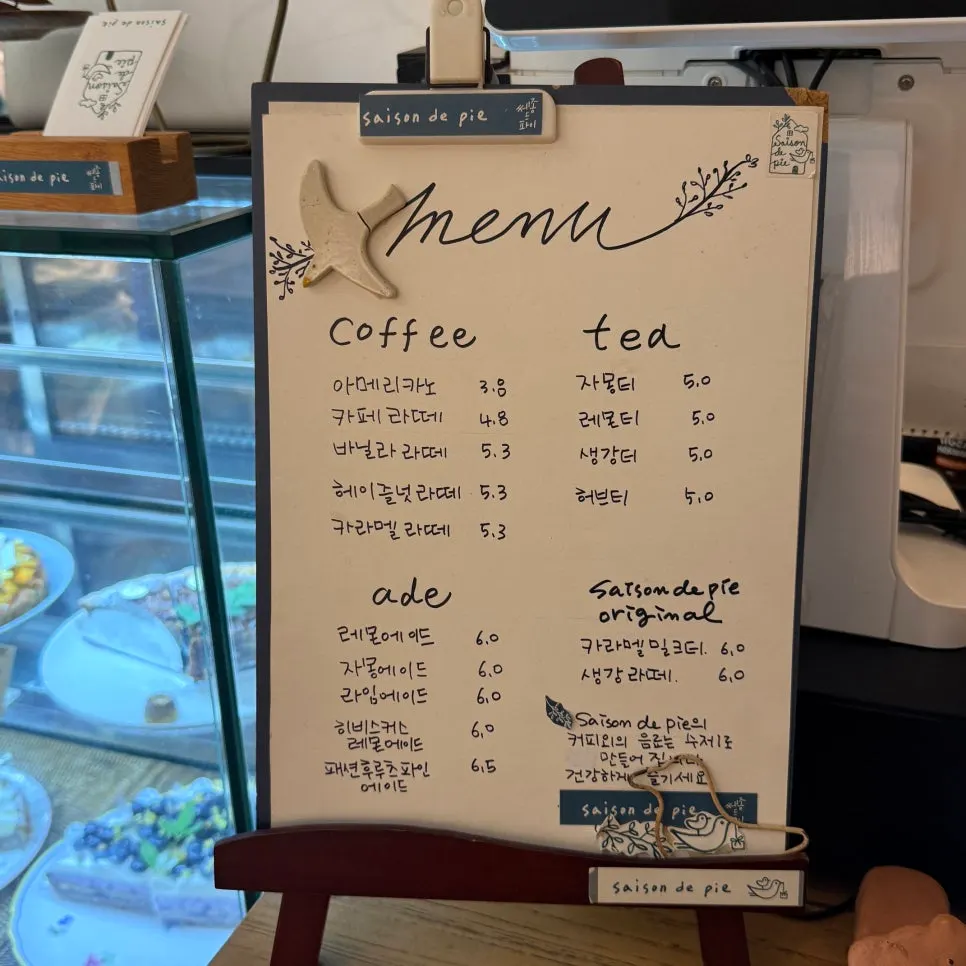 saison de pie
saison de pie
saison de pie
쎄종
드
파이
saison
de
pie
menu
coffee
아메리카노 3.8
카페 라떼 4.8
바닐라 라떼 5.3
헤이즐넛 라떼 5.3
카라멜 라떼 5.3
tea
자몽티 5.0
레몬티 5.0
생강티 5.0
허브티 5.0
ade
레몬에이드 6.0
자몽에이드 6.0
라임에이드 6.0
히비스커스
레몬에이드 6.0
패션후루츠파인
에이드 6.5
Saison de pie
original
카라멜밀크티. 6.0
생강라떼. 6.0
Saison de pie의
커피외의 음료는 수제로
만들어
건강하게
saison de pie
saison de pie